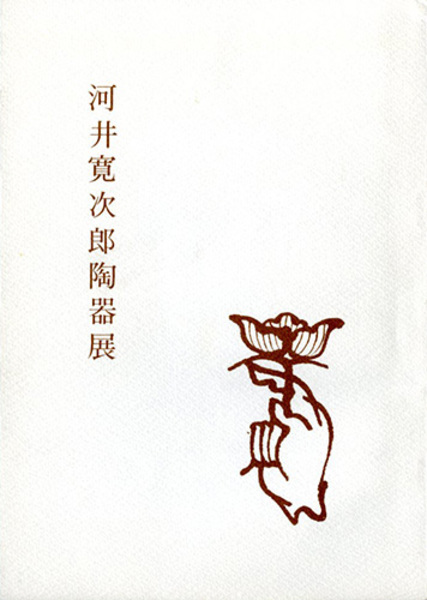 河井寛次郎陶器展